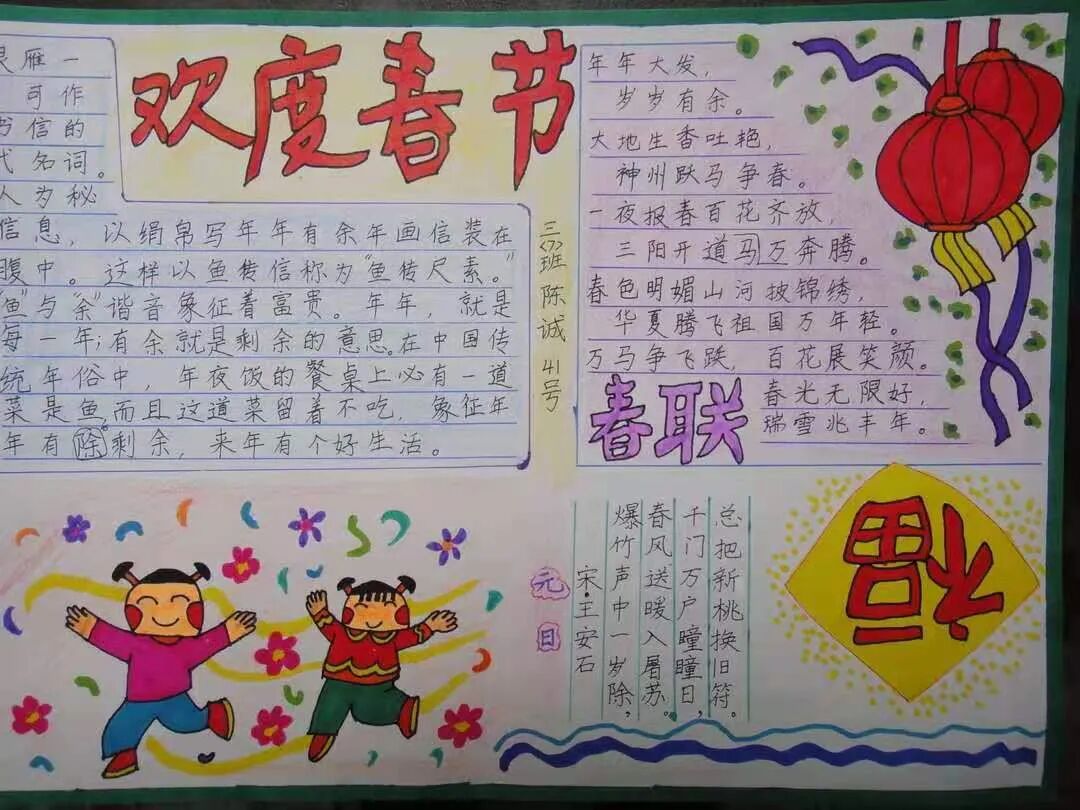 欢度春节
雁一
可作
书信的
代名词。
人为秘
信息，以绢帛写年年有余年画信装在
腹中。这样以鱼传信称为“鱼传尺素。”
鱼”与“余”谐音象征着富贵。年年，就是
每一年；有余就是剩余的意思。在中国传
统年俗中，年夜饭的餐桌上必有一道
菜是鱼，而且这道菜留着不吃，象征年
年有除剩余，来年有个好生活。
三〈7〉班 陈诚 41号
年年大发，
岁岁有余。
大地生香吐艳，
神州跃马争春。
一夜报春百花齐放，
三阳开道马万奔腾。
春色明媚山河披锦绣，
华夏腾飞祖国万年轻。
万马争飞跃，百花展笑颜。
春光无限好，
瑞雪兆丰年。
春联
福
元日
宋·王安石
爆竹声中一岁除，
春风送暖入屠苏。
千门万户瞳瞳日，
总把新桃换旧符。